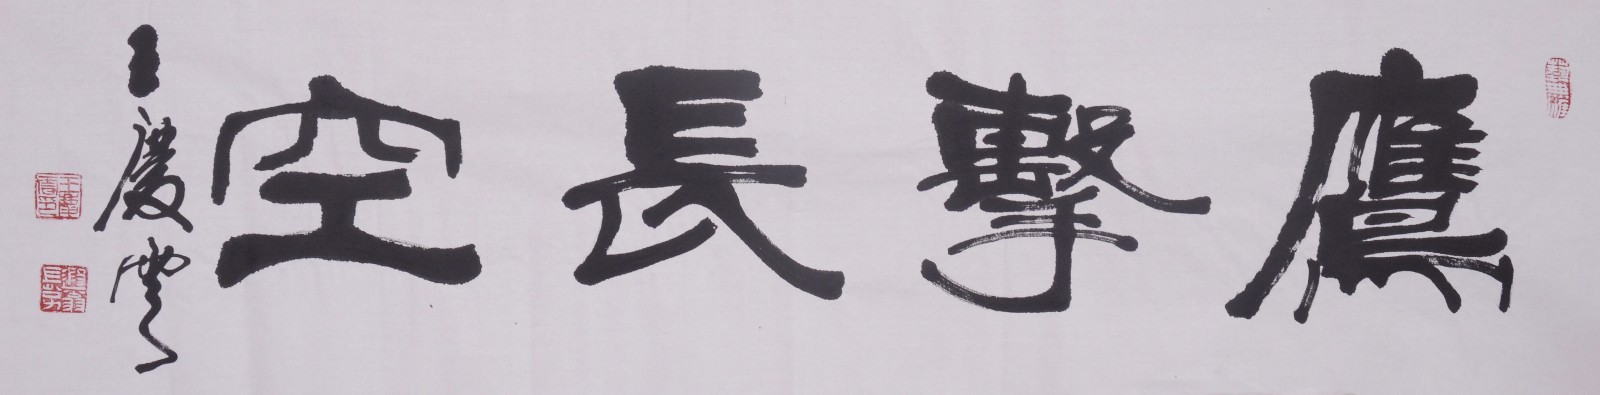 鷹擊長空
王慶雲